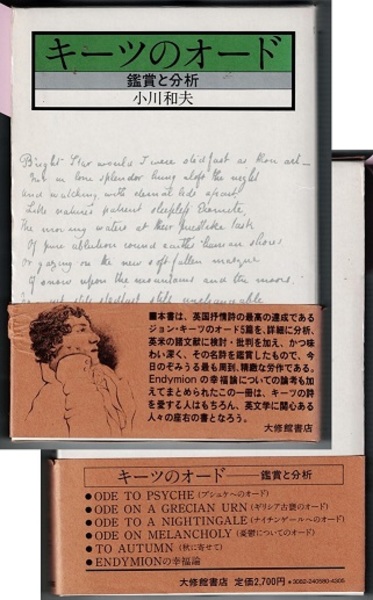 キーツのオード
鑑賞と分析
小川和夫
Bright Star would I were stedfast as thou art—
Not in lone splendor hung aloft the night
and watching with eternal lids apart
Like nature's patient sleepless Eremite,
The moving waters at their priestlike task
Of pure ablution round earth's human shores
Or gazing on the new soft fallen masque
Of snow upon the mountains and the moors.
still stedfast still unchangeable
■本書は、英国抒情詩の最高の達成である
ジョン・キーツのオード5篇を、詳細に分析、
英米の諸文献に検討・批判を加え、かつ味
わい深く、その名詩を鑑賞したもので、今
日のぞみうる最も周到、精緻な労作である。
Endymionの幸福論についての論考も加
えてまとめられたこの一冊は、キーツの詩
を愛する人はもちろん、英文学に関心ある
人々の座右の書となろう。
大修館書店
キーツのオード──鑑賞と分析
●ODE TO PSYCHE(プシュケへのオード)
●ODE ON A GRECIAN URN(ギリシア古甕のオード)
●ODE TO A NIGHTINGALE(ナイチンゲールへのオード)
●ODE ON MELANCHOLY(憂鬱についてのオード)
●TO AUTUMN(秋に寄せて)
●ENDYMIONの幸福論
大修館書店 定価2,700円 ●3082-240980-4305